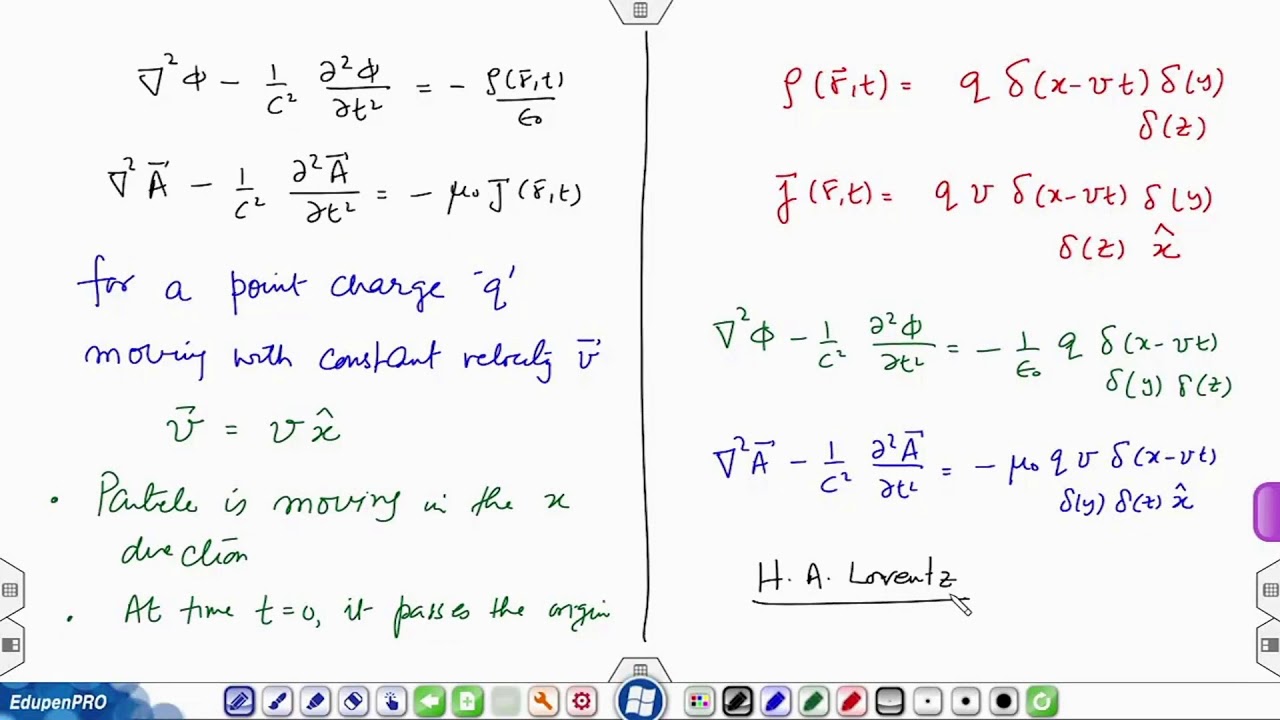 ∇²Φ − 1/c² ∂²Φ/∂t² = − ρ(r̄,t)/ε₀
∇²A⃗ − 1/c² ∂²A⃗/∂t² = − μ₀ J̄(r̄,t)
for a point charge 'q'
moving with constant velocity v⃗
v⃗ = v x̂
• Particle is moving in the x
direction
• At time t=0, it passes the origin
ρ(r̄,t) = q δ(x−vt) δ(y)
δ(z)
J⃗(r̄,t) = q v δ(x−vt) δ(y)
δ(z) x̂
∇²Φ − 1/c² ∂²Φ/∂t² = − 1/ε₀ q δ(x−vt)
δ(y) δ(z)
∇²A⃗ − 1/c² ∂²A⃗/∂t² = − μ₀ q v δ(x−vt)
δ(y) δ(z) x̂
H. A. Lorentz
EdupenPRO